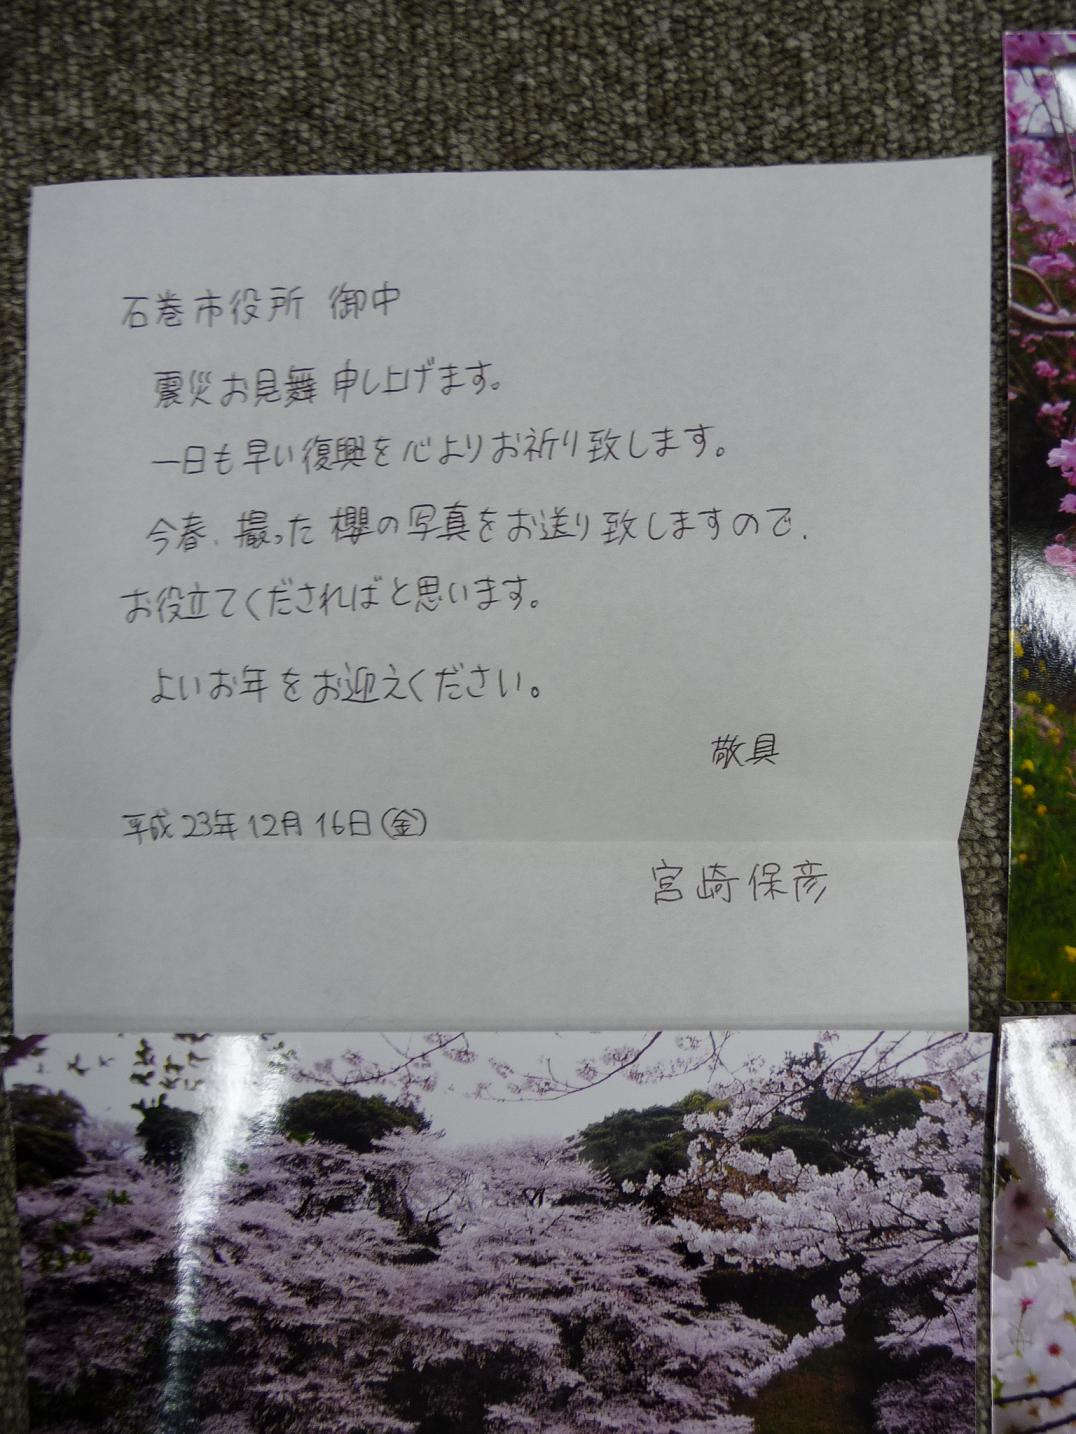 石巻市役所 御中
震災お見舞申し上げます。
一日も早い復興を心よりお祈り致します。
今春、撮った櫻の写真をお送り致しますので、
お役立てくださればと思います。
よいお年をお迎えください。
敬具
平成23年12月16日(金)
宮崎保彦